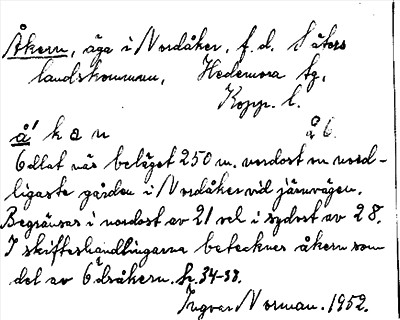 Åkern, äga i Nordåker, f. d. Säters
landskommun, Hedemora tg,
Kopp. l.
å' k a n å b.
Odlat när beläget 250 m. nordost om nord-
ligaste gården i Nordåker vid järnvägen.
Begränsas i nordost av 21 vel i sydost av 28.
I skifteshandlingarna betecknas åkern som
del av Ödsåkern. fr. 34-38.
Ingvar Norman. 1952.